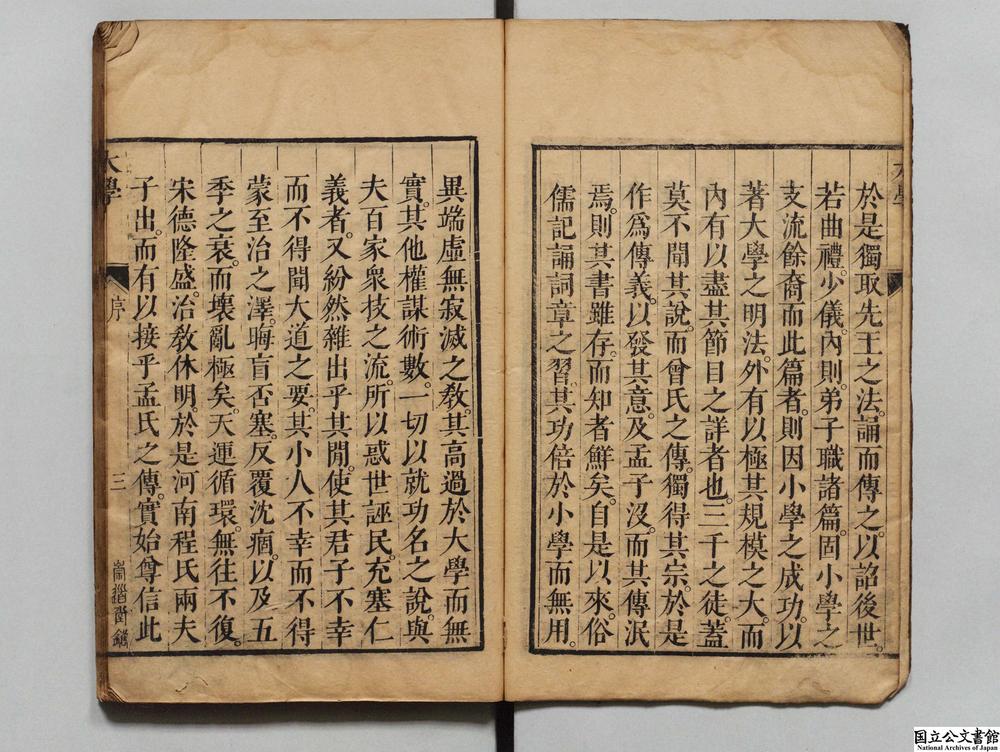 於是獨取先王之法。誦而傳之。以詔後世。
若曲禮。少儀。內則。弟子職諸篇。固小學之
支流餘裔。而此篇者。則因小學之成功。以
著大學之明法。外有以極其規模之大。而
內有以盡其節目之詳者也。三千之徒。蓋
莫不聞其說。而曾氏之傳。獨得其宗。於是
作爲傳義。以發其意。及孟子沒。而其傳泯
焉。則其書雖存。而知者鮮矣。自是以來。俗
儒記誦詞章之習。其功倍於小學而無用。
異端虛無寂滅之敎。其高過於大學而無
實。其他權謀術數。一切以就功名之說。與
夫百家衆技之流。所以惑世誣民。充塞仁
義者。又紛然雜出乎其閒。使其君子不幸
而不得聞大道之要。其小人不幸而不得
蒙至治之澤。晦盲否塞。反覆沈痼。以及五
季之衰。而壞亂極矣。天運循環。無往不復。
宋德隆盛。治敎休明。於是河南程氏兩夫
子出。而有以接乎孟氏之傳。實始尊信此
大學 序 三
國立公文書館
National Archives of Japan